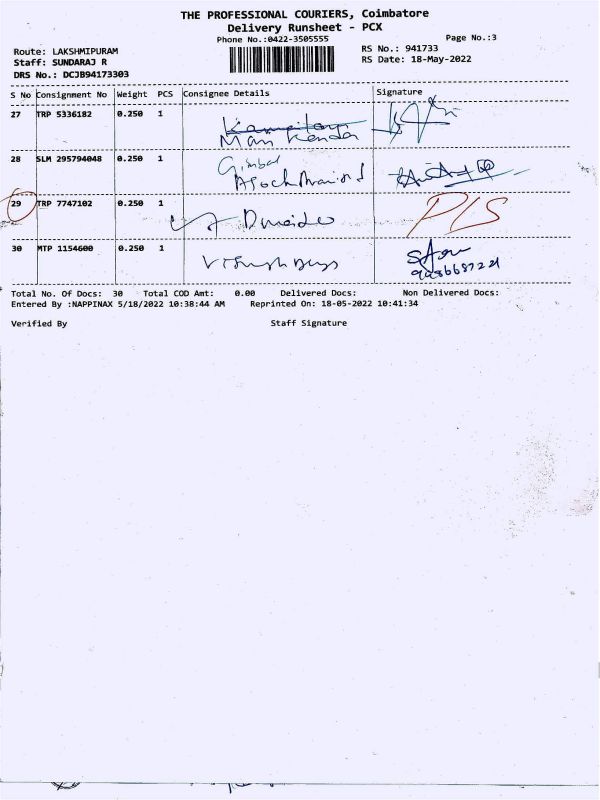 THE PROFESSIONAL COURIERS, Coimbatore
Delivery Runsheet - PCX
Phone No.:0422-3505555
Page No.:3
Route: LAKSHMIPURAM
RS No.: 941733
Staff: SUNDARAJ R
RS Date: 18-May-2022
DRS No.: DCJB94173303
S No Consignment No Weight PCS Consignee Details Signature
27 TRP 5336182 0.250 1
28 SLM 295794048 0.250 1 Gimbal
29 TRP 7747102 0.250 1 P/S
30 MTP 1154600 0.250 1
Total No. Of Docs: 30 Total COD Amt: 0.00 Delivered Docs: Non Delivered Docs:
Entered By :NAPPINAX 5/18/2022 10:38:44 AM Reprinted On: 18-05-2022 10:41:34
Verified By Staff Signature